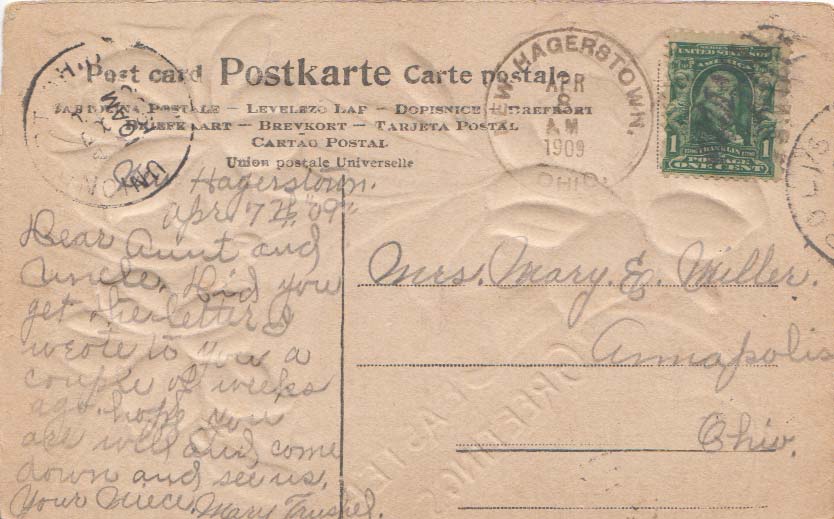 Post card Postkarte Carte postale
Postale – Levelező Lap – Dopisnice
Briefkaart – Brevkort – Tarjeta Postal
Cartão Postal
Union postale Universelle
NEW HAGERSTOWN.
APR
8
A.M
1909
OHIO
1 1
FRANKLIN
POSTAGE
ONE CENT
Hagerstown.
Apr 7th "09"
Dear Aunt and
Uncle, Did you
get the letter I
wrote to you a
couple of weeks
ago. hope you
are well and come
down and see us.
Your Niece. Mary
Mrs. Mary. E. Miller.
Annapolis
Ohio.
EASTER
GREETINGS